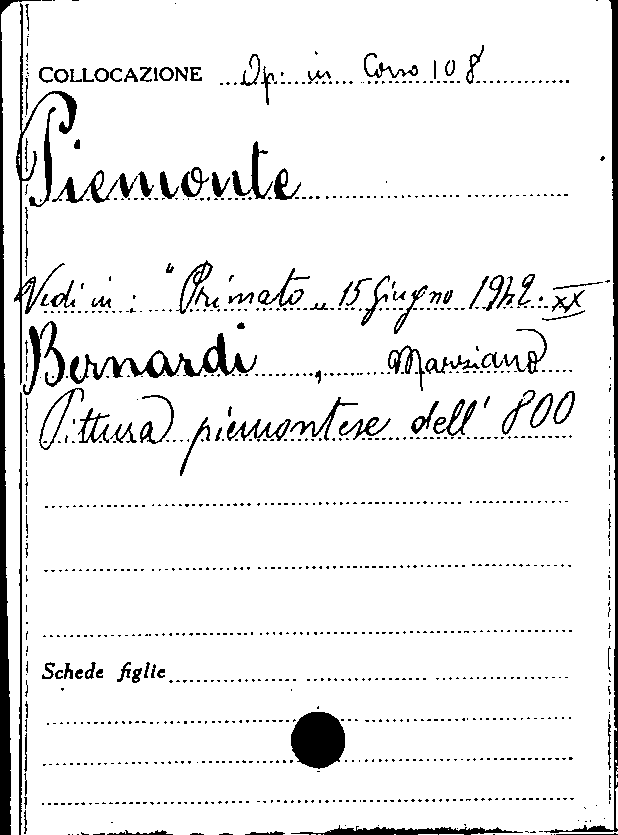 COLLOCAZIONE Op. in Corso 108
Piemonte
Vedi in: "Primato„ 15 Giugno 1942. XX
Bernardi, Marziano
Pittura piemontese dell' 800
Schede figlie